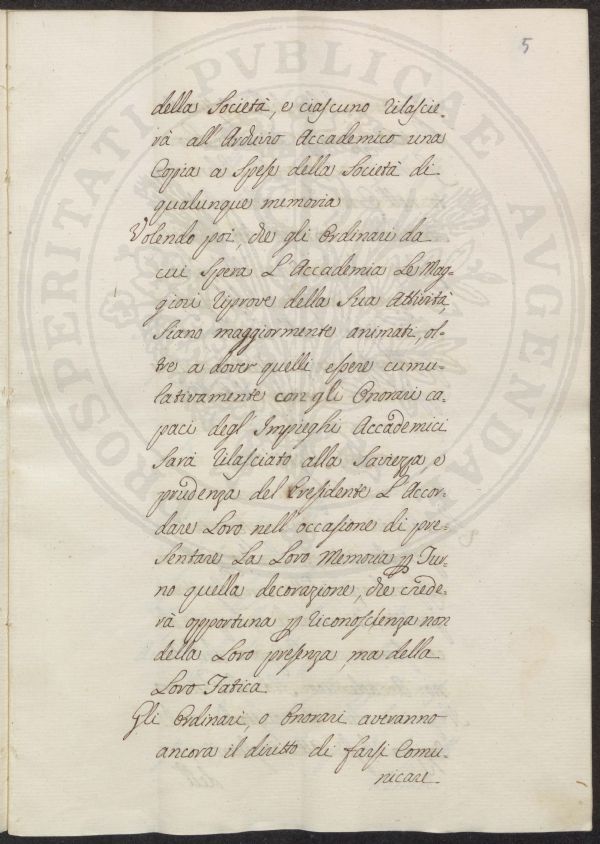 5
della Società, e ciascuno rilascie-
rà all'Archivio Accademico una
Copia a spese della Società di
qualunque memoria
Volendo poi, che gli Ordinari da
cui spera L'Accademia Le Mag-
giori riprove della sua Attività,
siano maggiormente animati, ol-
tre a dover quelli essere cumu-
lativamente con gli Onorari ca-
paci degl'Impieghi Accademici
sarà rilasciato alla saviezza, e
prudenza del Presidente L'Accor-
dare Loro nell'occasione di pre-
sentare La Loro Memoria p Tur-
no quella decorazione, che crede-
rà opportuna p riconoscienza non
della Loro presenza ma della
Loro Fatica
Gli Ordinari, o Onorari averanno
ancora il diritto di farsi Comu-
nicare
PROSPERITATI PVBLICAE AVGENDAE